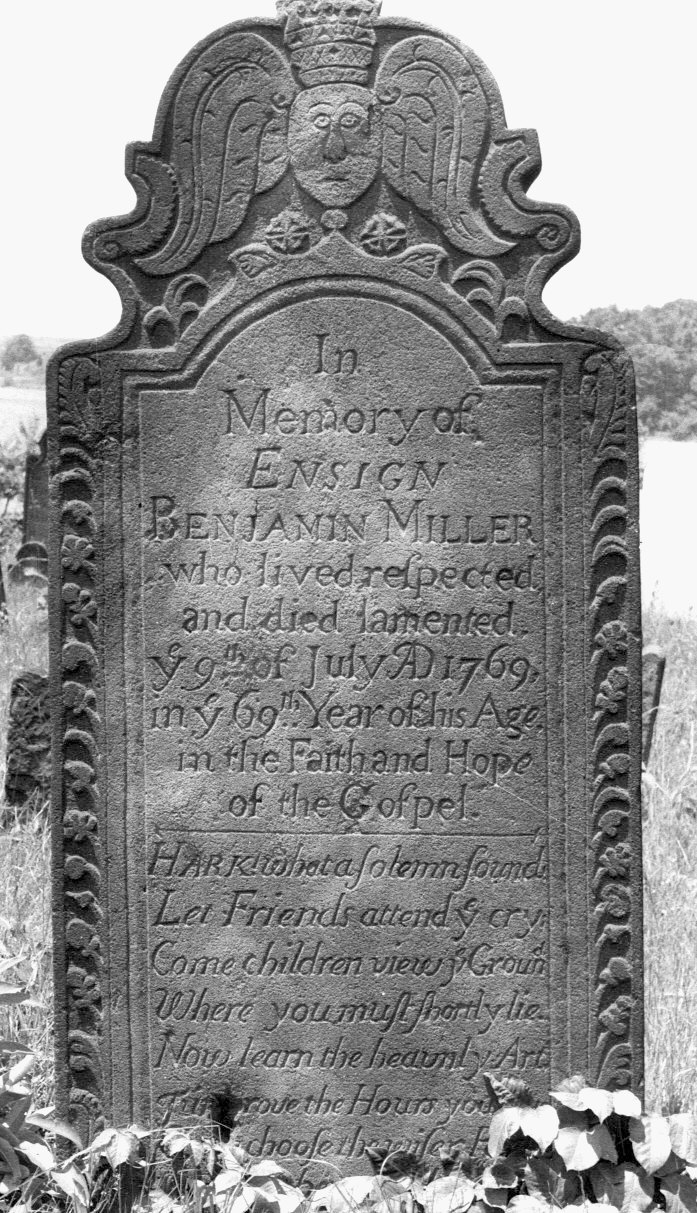 In
Memory of
ENSIGN
BENJAMIN MILLER
who lived reſpected
and died lamented.
yͤ 9ᵗʰ of July AD 1769.
in yͤ 69ᵗʰ Year of his Age.
in the Faith and Hope
of the Goſpel.
HARK! what a ſolemn ſound.
Let Friends attend yͤ cry.
Come children view yͤ Grouⁿᵈ
Where you muſt ſhortly lie.
Now learn the heavnly Art.
the Hours you
chooſe the wiſer